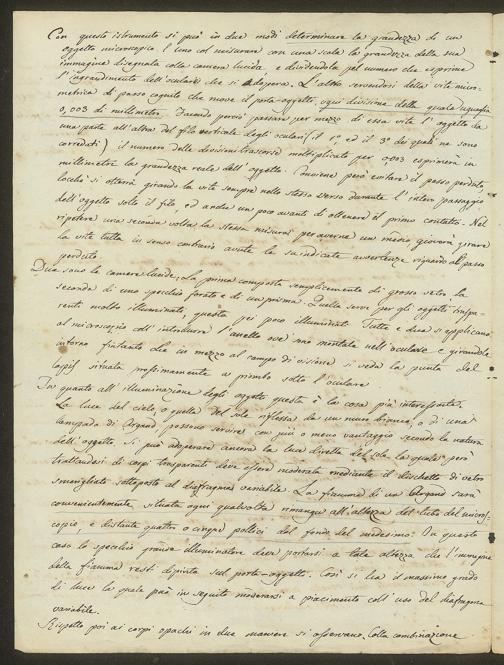 Con questo istrumento si può in due modi determinare la grandezza di un
oggetto microscopico. l'uno col misurare con una scala la grandezza della sua
immagine disegnata colla camera lucida e dividendola pel numero che esprime
l'ingrandimento dell'oculare che si adopera. L'altro servendosi della vite micro-
metrica di passo cognito che move il porta-oggetto, ogni divisione della quale uguaglia
0,003 di millimetro. Facendo perciò passare per mezzo di essa vite l'oggetto da
una parte all'altra del filo verticale degli oculari (il 1°, ed il 3° dei quali ne sono
corredati) il numero delle divisioni trascorse moltiplicato per 0,003 esprimerà in
millimetri la grandezza reale dell'oggetto. Conviene però evitare il passo perduto,
locchè si otterrà girando la vite sempre nello stesso verso durante l'intero passaggio
dell'oggetto sotto il filo, ed anche un poco avanti di ottenere il primo contatto. Nel
ripetere una seconda volta la stessa misura per averne un medio, gioverà girare
la vite tutta in senso contrario avute le su indicate avvertenze riguardo al passo
perduto.
Due sono le camere lucide; la prima composta semplicemente di grosso vetro la
seconda di uno specchio forato e di un prisma. Quella serve per gli oggetti traspa-
renti molto illuminati, questa pei poco illuminati. Tutte e due si applicano
al microscopio coll'introdurre l'anello ove son montate nell'oculare e girandole
intorno fintanto che in mezzo al campo di visione si veda la punta del
lapis situata prossimamente a piombo sotto l'oculare
In quanto all'illuminazione degli oggetti questa è la cosa più interessante.
La luce del cielo, o quella del sole riflessa da un muro bianco, o di una
lampada di Argand possono servire con più o meno vantaggio secondo la natura
dell'oggetto. Si può adoperare ancora la luce diretta del sole la quale però
trattandosi di corpi trasparenti deve essere moderata mediante il dischetto di vetro
smerigliato sottoposto al diaframma variabile. La fiamma di un Argand sarà
convenientemente situata ogni qualvolta rimanga all'altezza del tubo del micros-
copio, e distante quattro o cinque pollici dal fondo del medesimo. In questo
caso lo specchio grande illuminatore deve portarsi a tale altezza che l'immagine
della fiamma resti dipinta sul porta-oggetto. Così si ha il massimo grado
di luce la quale può in seguito moderarsi a piacimento coll'uso del diaframma
variabile.
Rispetto poi ai corpi opachi in due maniere si osservano. Colla combinazione